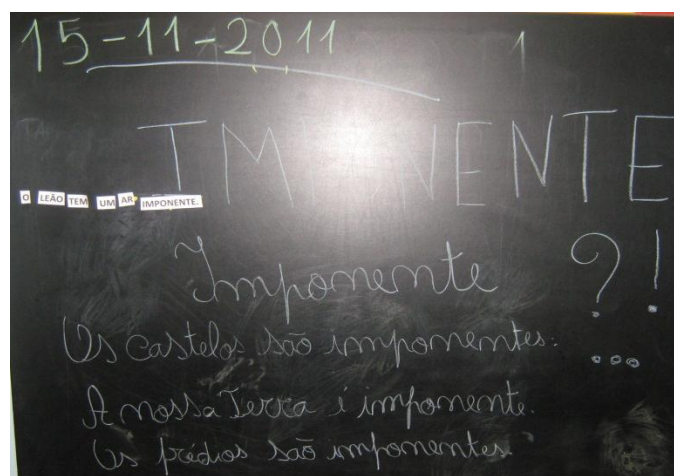 15-11-2011 1
IMPONENTE
O LEÃO TEM UM AR IMPONENTE.
Imponente ?!
Os castelos são imponentes. ...
A nossa Terra é imponente.
Os prédios são imponentes.